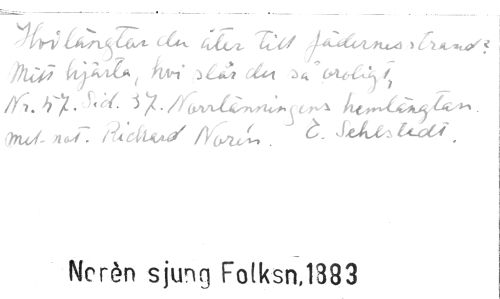 Hvi längtar du åter till fädernesstrand?
Mitt hjärta, hvi slår du så oroligt,
Nr. 47. Sid. 37. Norrlänningens hemlängtan.
mel. not. Richard Norén. E. Sehlstedt.
Norèn sjung Folksn,1883